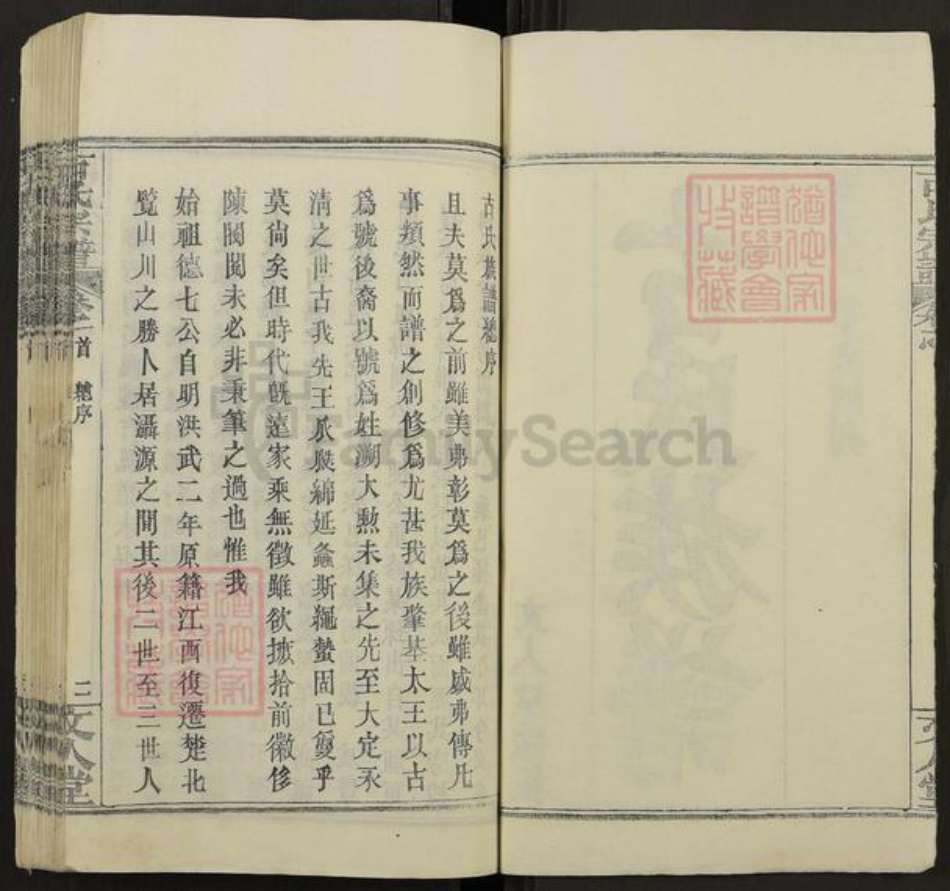 古氏族譜總序
且夫莫爲之前雖美弗彰莫爲之後雖盛弗傳凡
事類然而譜之創修爲尤甚我族肇基太王以古
爲號後裔以號爲姓溯大勲未集之先至大定永
淸之世古我先王瓜瓞綿延螽斯繩蟄固已敻乎
莫尙矣但時代旣遠家乘無徵雖欲摭拾前徽侈
陳閥閱未必非秉筆之過也惟我
始祖德七公自明洪武二年原籍江西復遷楚北
覧山川之勝卜居灄源之間其後二世至三世人
古氏宗譜
卷首
總序
二
文人堂
古氏宗譜
文人堂
譜學會
收藏
譜學會
收藏
FamilySearch